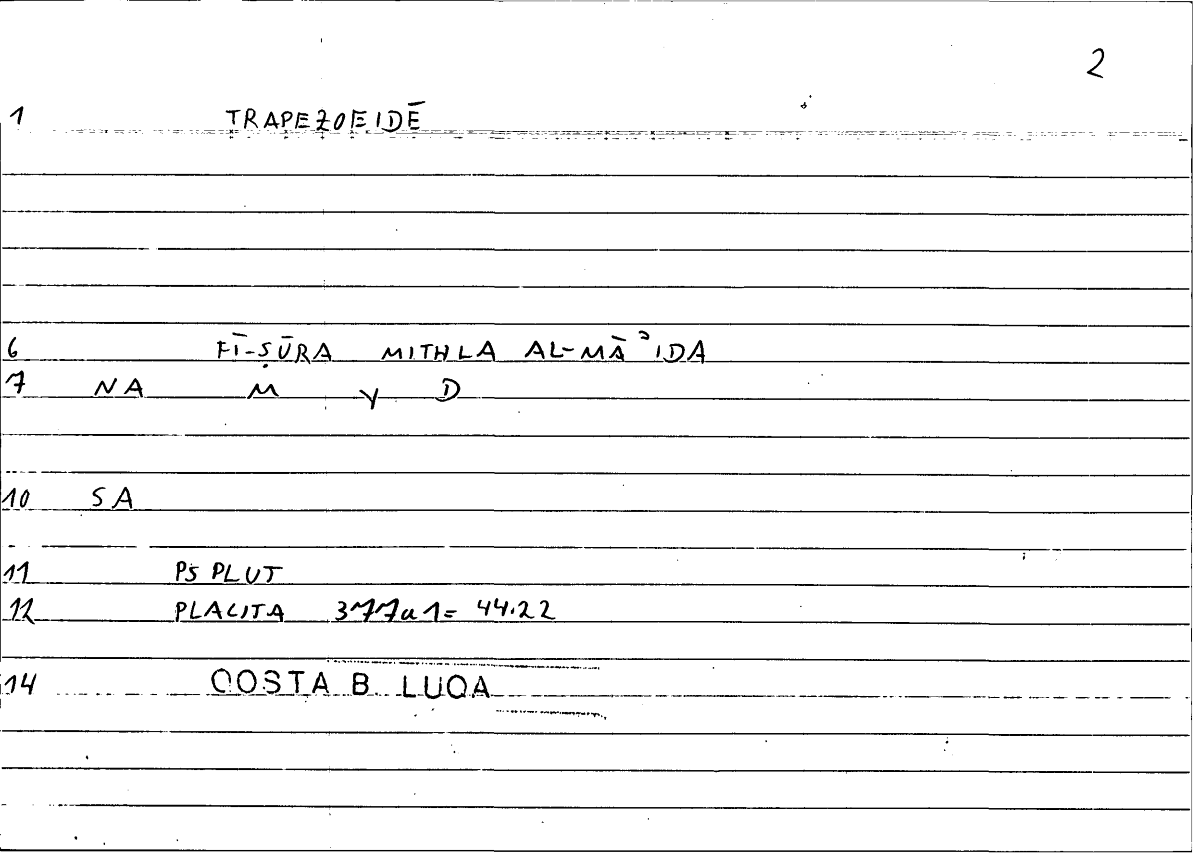 2
1 TRAPEZOEIDĒ
6 FĪ-ṢŪRA MITHLA AL-MĀʾIDA
7 NA M Y D
10 SA
11 PS PLUT
12 PLACITA 377a1= 44.22
14 COSTA B. LUQA